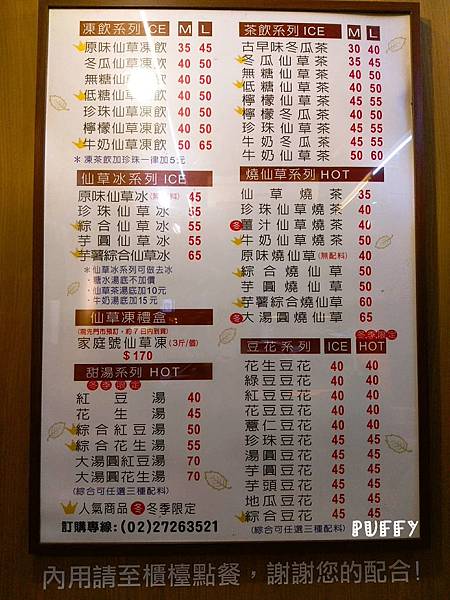 凍飲系列 ICE M L
原味仙草凍飲 35 45
冬瓜仙草凍飲 40 50
無糖仙草凍飲 40 50
低糖仙草凍飲 40 50
珍珠仙草凍飲 40 50
檸檬仙草凍飲 40 50
牛奶仙草凍飲 50 65
*凍茶飲加珍珠一律加5元
仙草冰系列 ICE
原味仙草冰(無配料) 45
珍珠仙草冰 55
綜合仙草冰 55
芋圓仙草冰 55
芋薯綜合仙草冰 65
*仙草冰系列可做去冰
·糖水湯底不加價
·仙草茶湯底加10元
·牛奶湯底加15元
仙草凍禮盒
(需先門市預訂，約7日內到貨)
家庭號仙草凍(3斤/個)
$170
甜湯系列 HOT
冬季限定
紅豆湯 40
花生湯 45
綜合紅豆湯 50
綜合花生湯 55
大湯圓紅豆湯 70
大湯圓花生湯 70
(綜合可任選三種配料)
人氣商品 冬 冬季限定
訂購專線:(02)27263521
茶飲系列 ICE M L
古早味冬瓜茶 30 40
冬瓜仙草茶 35 45
無糖仙草茶 40 50
低糖仙草茶 40 50
檸檬仙草茶 45 55
檸檬冬瓜茶 40 50
珍珠仙草茶 45 55
牛奶冬瓜茶 45 55
牛奶仙草茶 50 60
燒仙草系列 HOT
仙草燒茶 35
珍珠仙草燒茶 40
冬 薑汁仙草燒茶 40
牛奶仙草燒茶 50
原味燒仙草(無配料) 40
綜合燒仙草 50
芋圓燒仙草 50
芋薯綜合燒仙草 60
冬 大湯圓燒仙草 65
冬季限定
豆花系列 ICE HOT
花生豆花 40 40
綠豆豆花 40 40
紅豆豆花 40 40
花豆豆花 40 40
薏仁豆花 40 40
珍珠豆花 45 45
湯圓豆花 45 45
芋圓豆花 45 45
芋頭豆花 45 45
地瓜豆花 45 45
綜合豆花 45 45
(綜合可任選三種配料)
PUFFY
內用請至櫃檯點餐，謝謝您的配合!